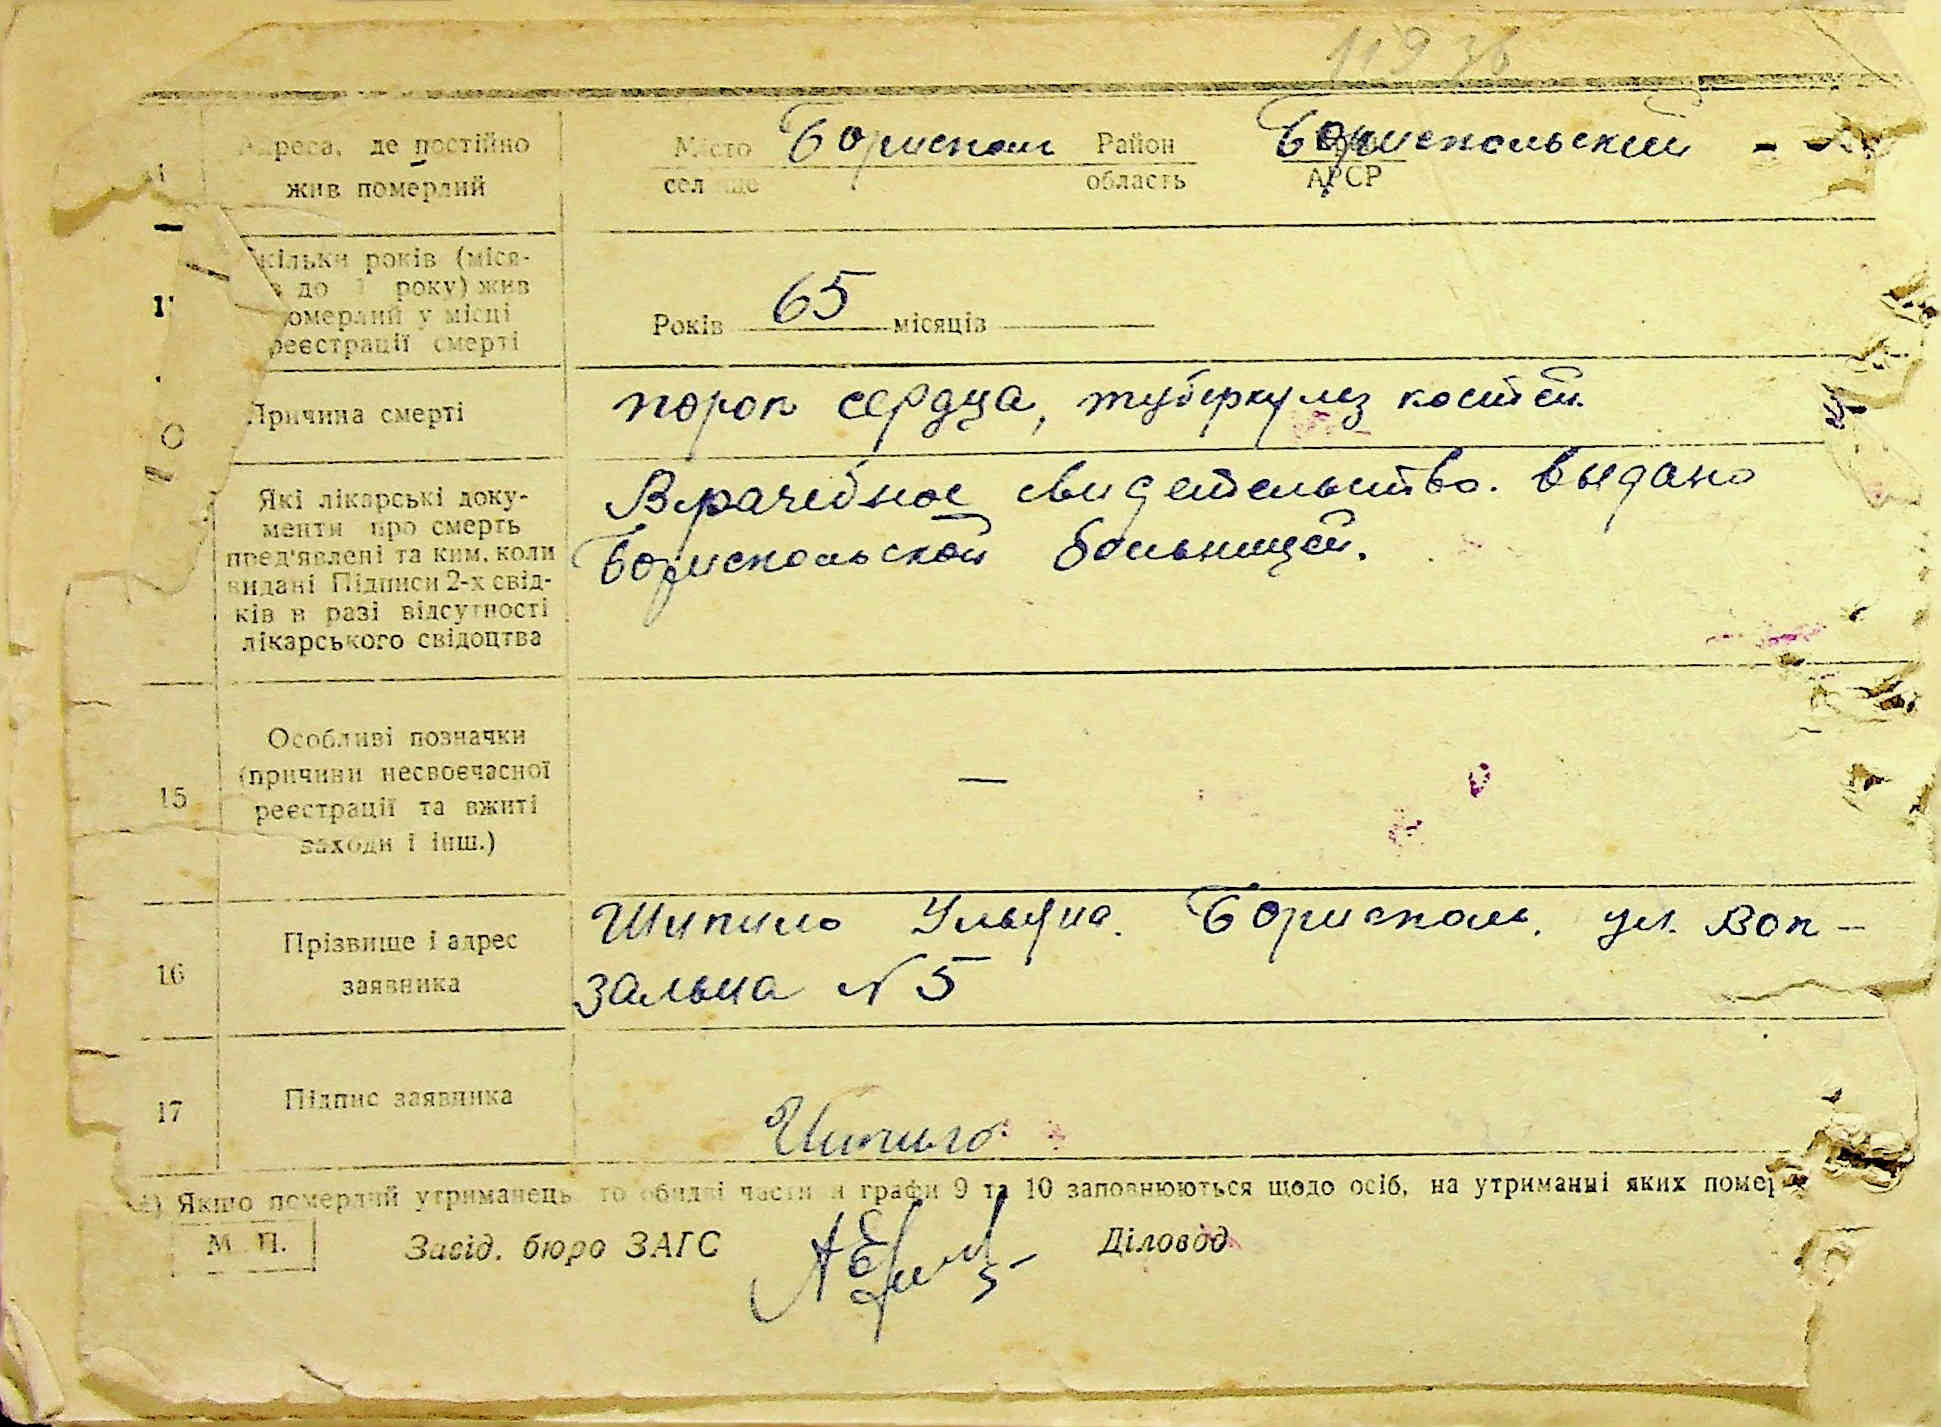 11936
Адреса, де постійно
жив померлий
Місто Бориспол Район Бориспольский
селище область АРСР
Скільки років (міся-
ців до 1 року) жив
померлий у місці
реєстрації смерті
Років 65 місяців
Причина смерті
порок сердца, туберкулез костей.
Які лікарські доку-
менти про смерть
пред'явлені та ким, коли
видані Підписи 2-х свід-
ків в разі відсутності
лікарського свідоцтва
Врачебное свидетельство. выдано
Бориспольской больницей.
15
Особливі позначки
(причини несвоєчасної
реєстрації та вжиті
заходи і інш.)
—
16
Прізвище і адрес
заявника
Шипило Ульяна. Борисполь. ул. Вок-
зальна N 5
17
Підпис заявника
Шипило
Якщо померлий утриманець то обидві части и графи 9 та 10 заповнюються щодо осіб, на утриманні яких помер
М. П. Завід. бюро ЗАГС Діловод